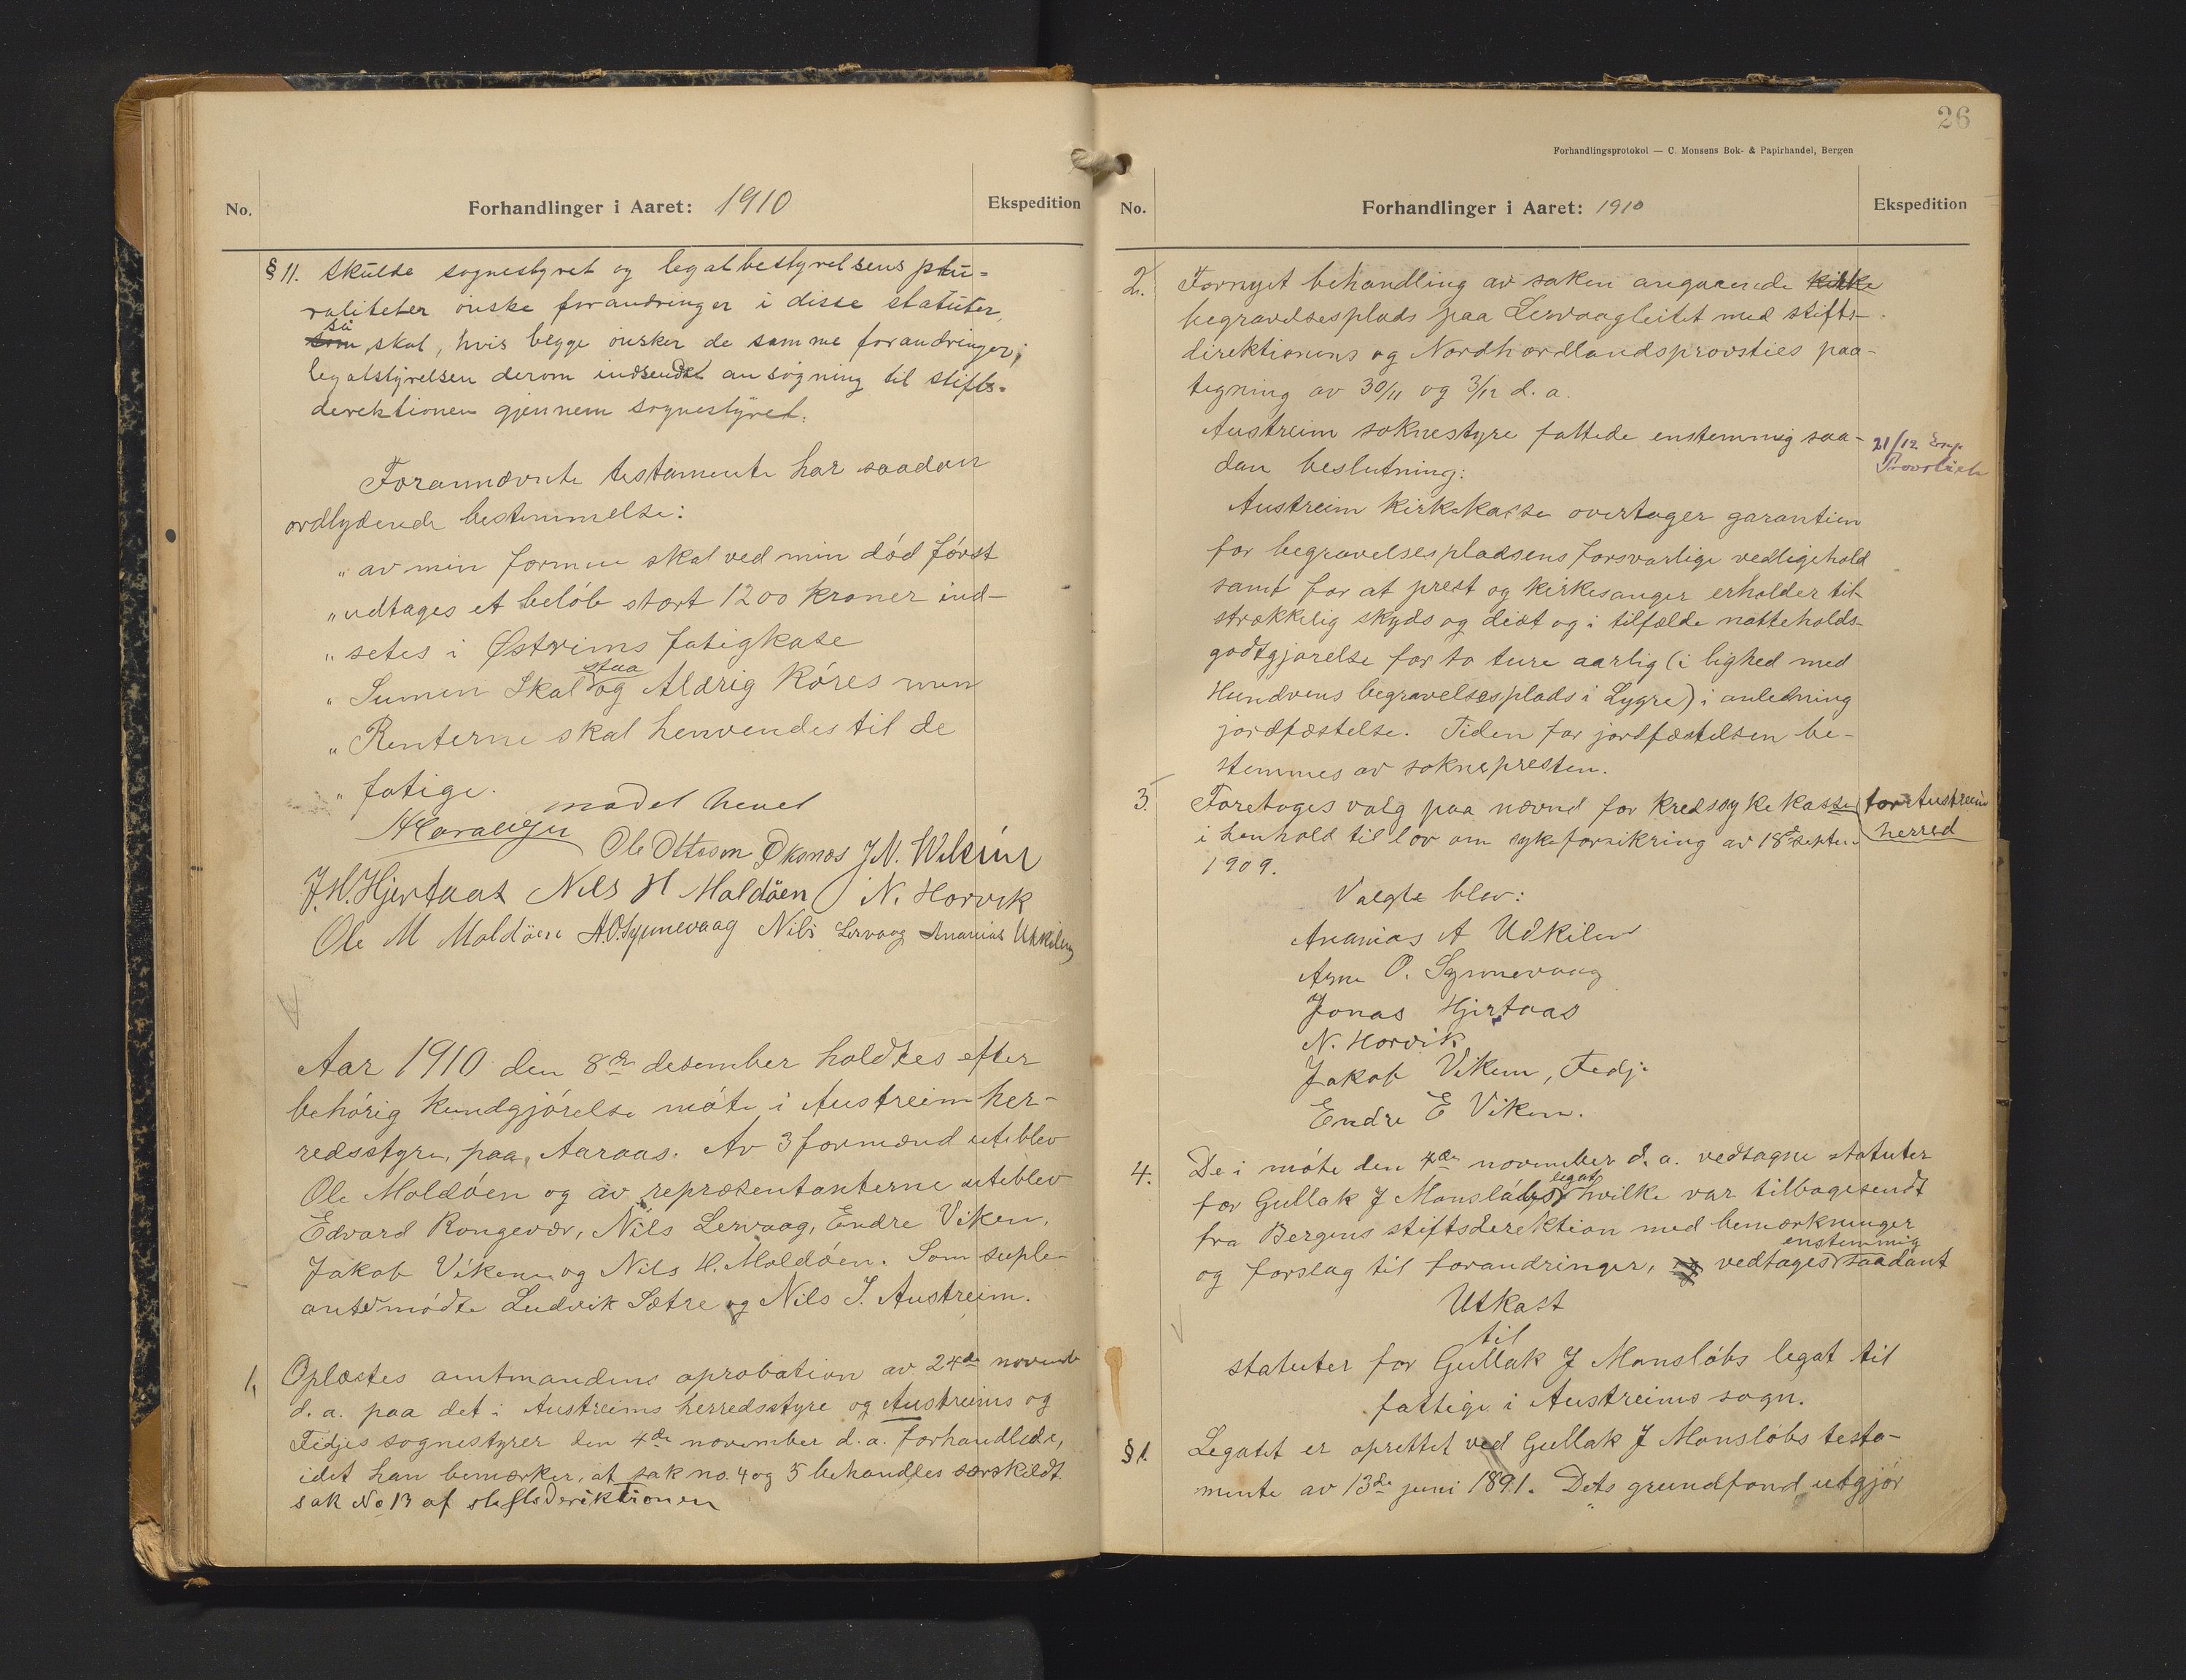 No.
Forhandlinger i Aaret: 1910
Ekspedition
§ 11. Skulde sognestyret og legatbestyrelsens plu-
raliteter ønske forandringer i disse statuter,
så
som skal, hvis begge ønsker de samme forandringer;
legatstyrelsen derom indsendt ansøgning til stifts-
derektionen gjennem sognestyret.
Forannævnte testamente har saadan
ordlydende bestemmelse:
„ av min formue skal ved min død først
„ udtages et beløb stort 1200 kroner ind-
„ setes i Østreims fatigkase
staa
„ Sumen Skal og Aldrig Røres men
„ Renterne skal henvendes til de
„ fatige.
Ole Ottosen Øksnes J.N. Wiken
J.H. Hjertaas Nils H Moldøen N. Horvik
Ole M Moldøen A.O. Synnevaag Nils Lervaag Ananias Utkilen
Aar 1910 den 8de desember holdtes efter
behørig kundgjørelse møte i Austreim her-
redsstyre, paa Aaraas. Av 3 formænd uteblev
Ole Moldøen og av repræsentanterne uteblev
Edvard Rongevær, Nils Lervaag, Endre Viken,
Jakob Viken og Nils H. Moldøen. Som suple-
anter mødte Ludvik Sætre og Nils I. Austreim.
1, Oplæstes amtmandens aprobation av 24de novemb
d. a. paa det i Austreims herredsstyre og Austreims og
Fedjes sognestyrer den 4de november d. a. forhandlede,
idet han bemærker, at sak no. 4 og 5 behandles særskildt
sak No 13 af stiftsderiktionen
26
Forhandlingsprotokol — C. Monsens Bok- & Papirhandel, Bergen
No.
Forhandlinger i Aaret: 1910
Ekspedition
2. Fornyet behandling av saken angaaende kirke
begravelsesplads paa Lervaagleitet med stifts-
direktionens og Nordhordlandsprovsties paa-
tegning av 30/11 og 3/12 d. a.
Austreim soknestyre fattede enstemmig saa-
21/12 Exp
dan beslutning:
Austreim kirkekasse overtager garantien
for begravelsespladsens forsvarlige vedligehold
samt for at prest og kirkesanger erholder til-
strækkelig skyds og diæt og i tilfælde natteholds-
godtgjørelse for to ture aarlig (i lighed med
Hundvens begravelsesplads i Lygre) i anledning
jordfæstelse. Tiden for jordfæstelsen be-
stemmes av soknepresten.
3. Foretages valg paa nævnd for kredssykekasse for Austreim
herred
i henhold til lov om sykeforsikring av 18de septem
1909.
Valgte blev:
Ananias A Udkilen
Arne O. Synnevaag
Jonas Hjertaas
N. Horvik
Jakob Viken, Fedje
Endre E Viken.
4. De i møte den 4de november d. a. vedtagne statuter
legat
for Gullak J Monsløbs hvilke var tilbagesendt
fra Bergens stiftsderektion med bemærkninger
enstemmig
og forslag til forandringer, og vedtages saadant
Utkast
til
statuter for Gullak J Monsløbs legat til
fattige i Austreims sogn.
§ 1. Legatet er oprettet ved Gullak J Monsløbs testa-
mente av 13de juni 1891. Dets grundfond utgjør